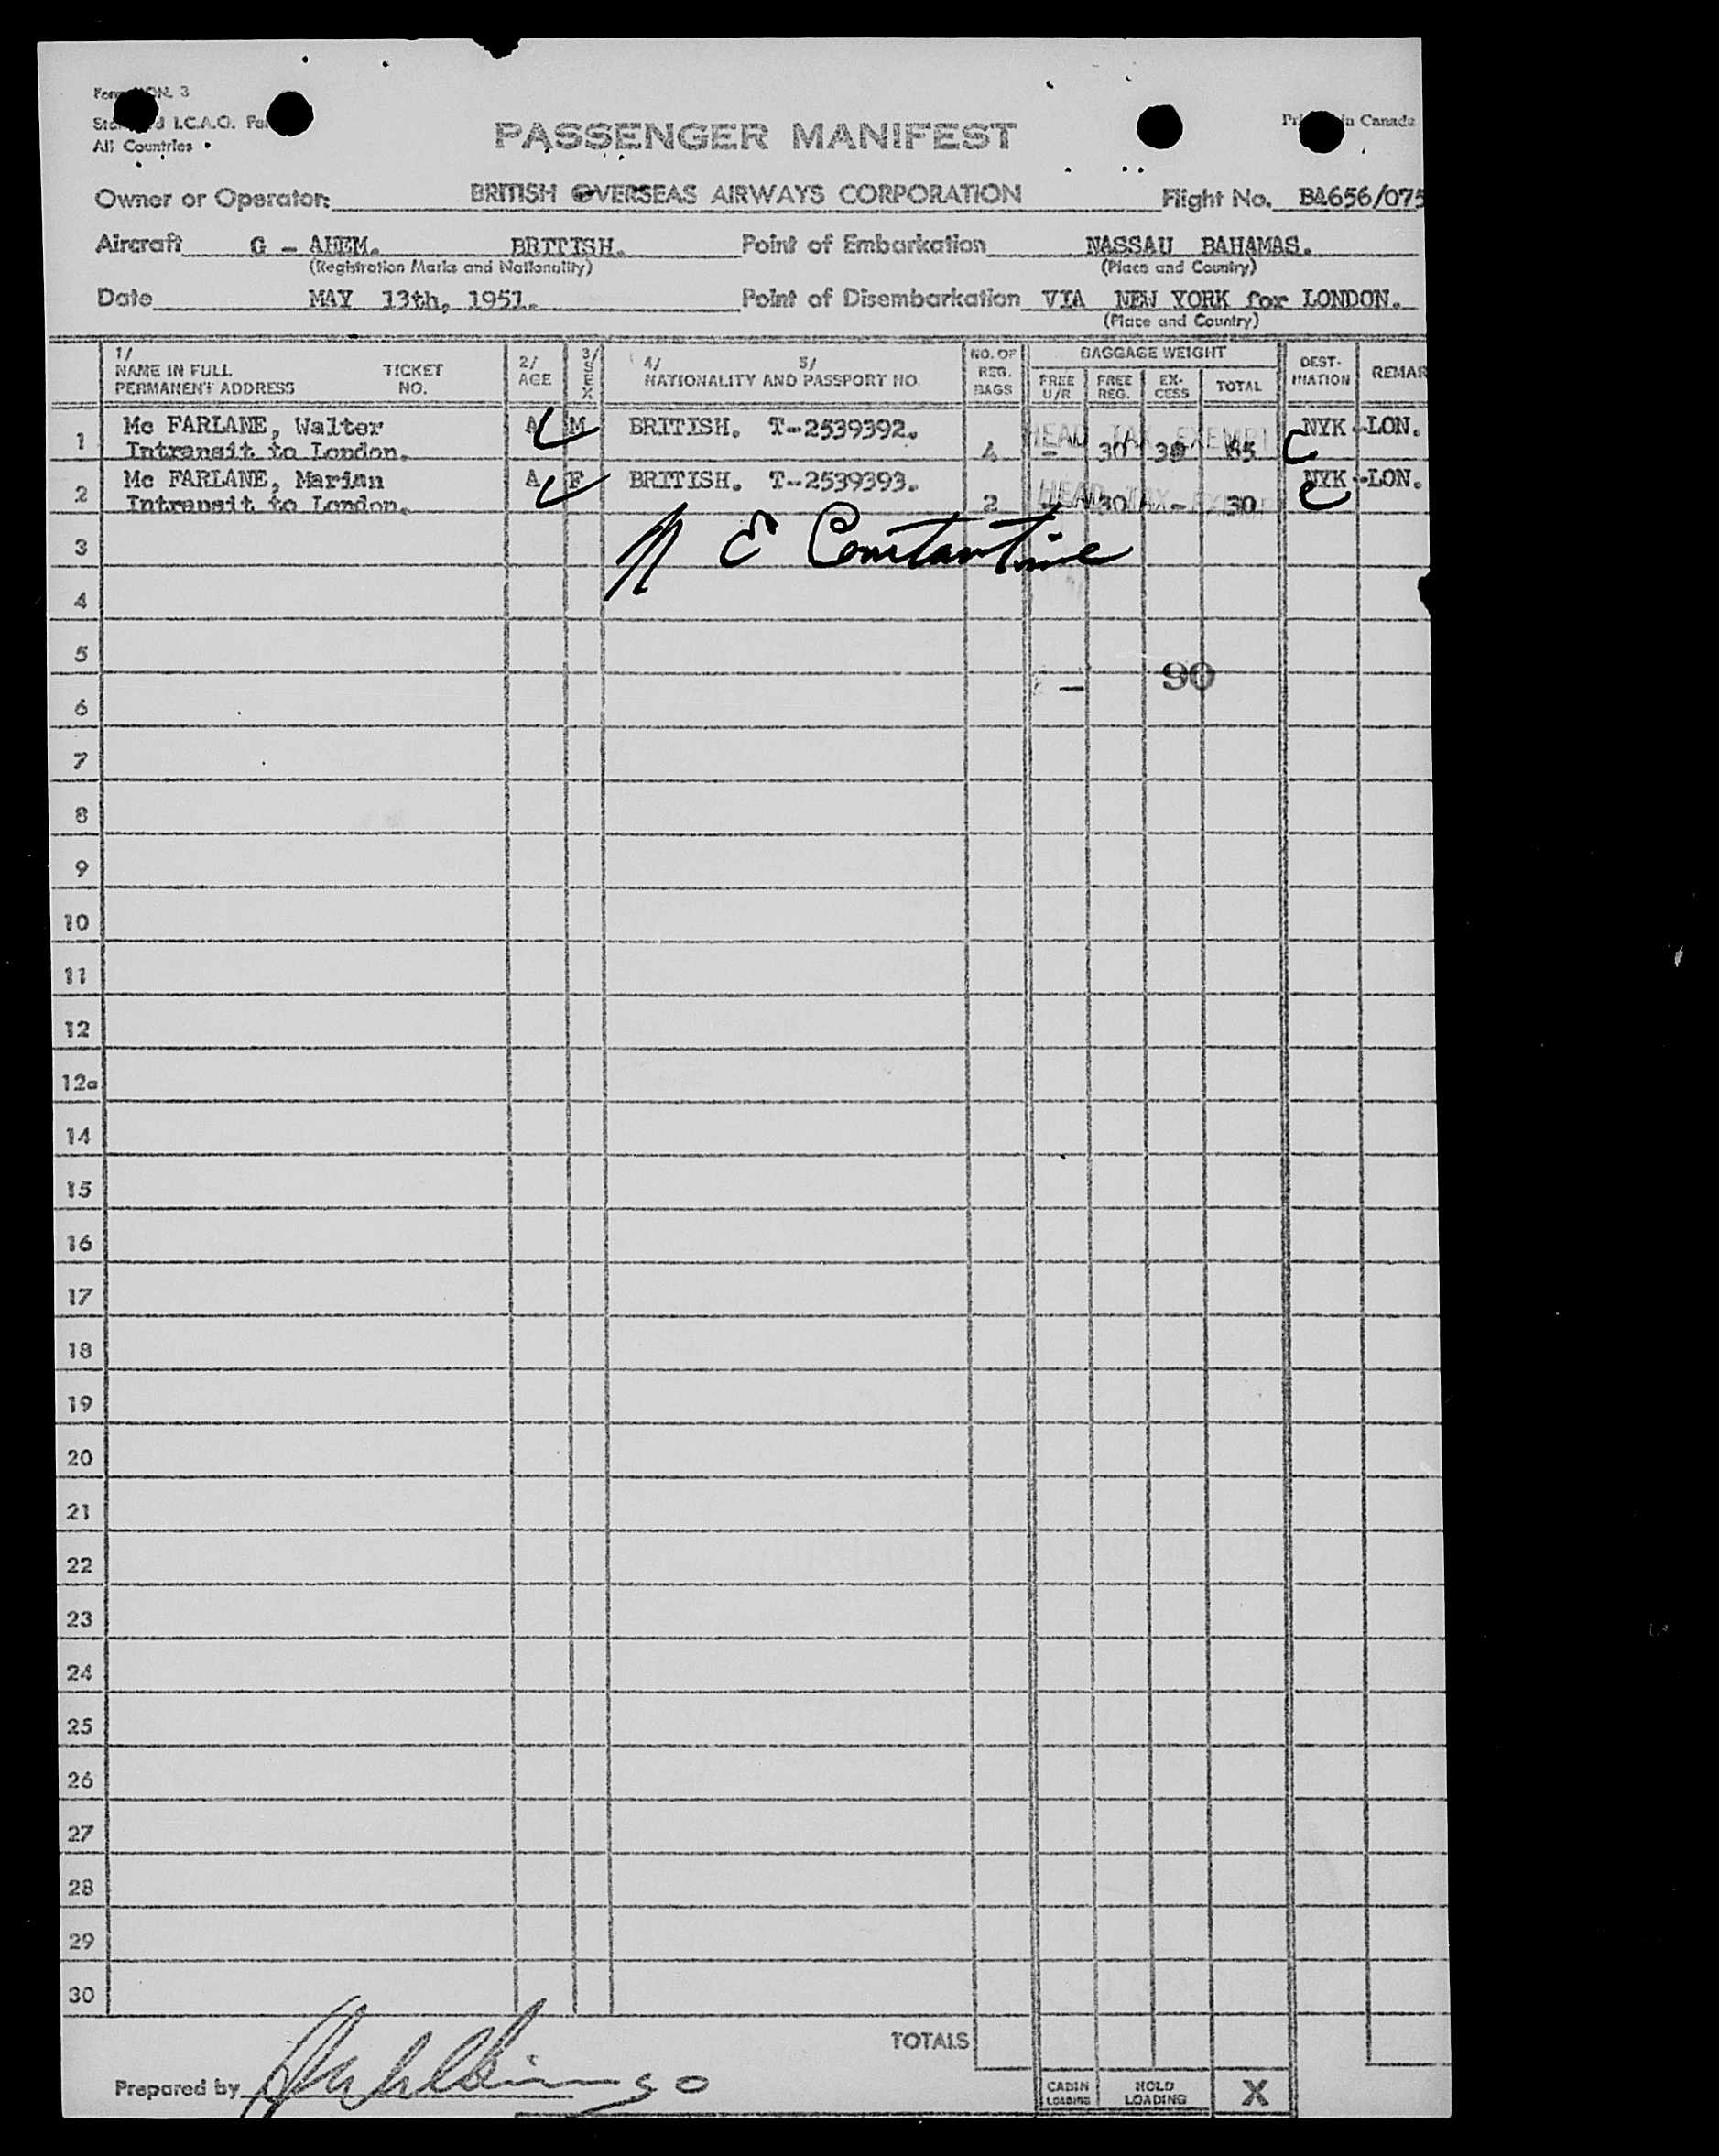 Form 3
I.C.A.O.
All Countries
Printed in Canada
PASSENGER MANIFEST
Owner or Operator: BRITISH OVERSEAS AIRWAYS CORPORATION Flight No. BA656/075
Aircraft G - AHEM. BRITISH. Point of Embarkation NASSAU BAHAMAS.
(Registration Marks and Nationality) (Place and Country)
Date MAY 13th, 1951. Point of Disembarkation VIA NEW YORK for LONDON.
(Place and Country)
1/ NAME IN FULL PERMANENT ADDRESS TICKET NO. 2/ AGE 3/ SEX 4/ 5/ NATIONALITY AND PASSPORT NO. NO. OF REG. BAGS BAGGAGE WEIGHT FREE U/R FREE REG. EX-CESS TOTAL DEST-INATION REMAR
1 Mc FARLANE, Walter A M BRITISH. T-2539392. HEAD TAX EXEMPT NYK-LON.
Intransit to London. 4 - 30
2 Mc FARLANE, Marian A F BRITISH. T-2539393. HEAD TAX EXEMPT NYK-LON.
Intransit to London. 2 - 30 - 30
3 E Constantine
4
5
- 90
6
7
8
9
10
11
12
12a
14
15
16
17
18
19
20
21
22
23
24
25
26
27
28
29
30
TOTALS
Prepared by
CABIN LOADING HOLD LOADING X